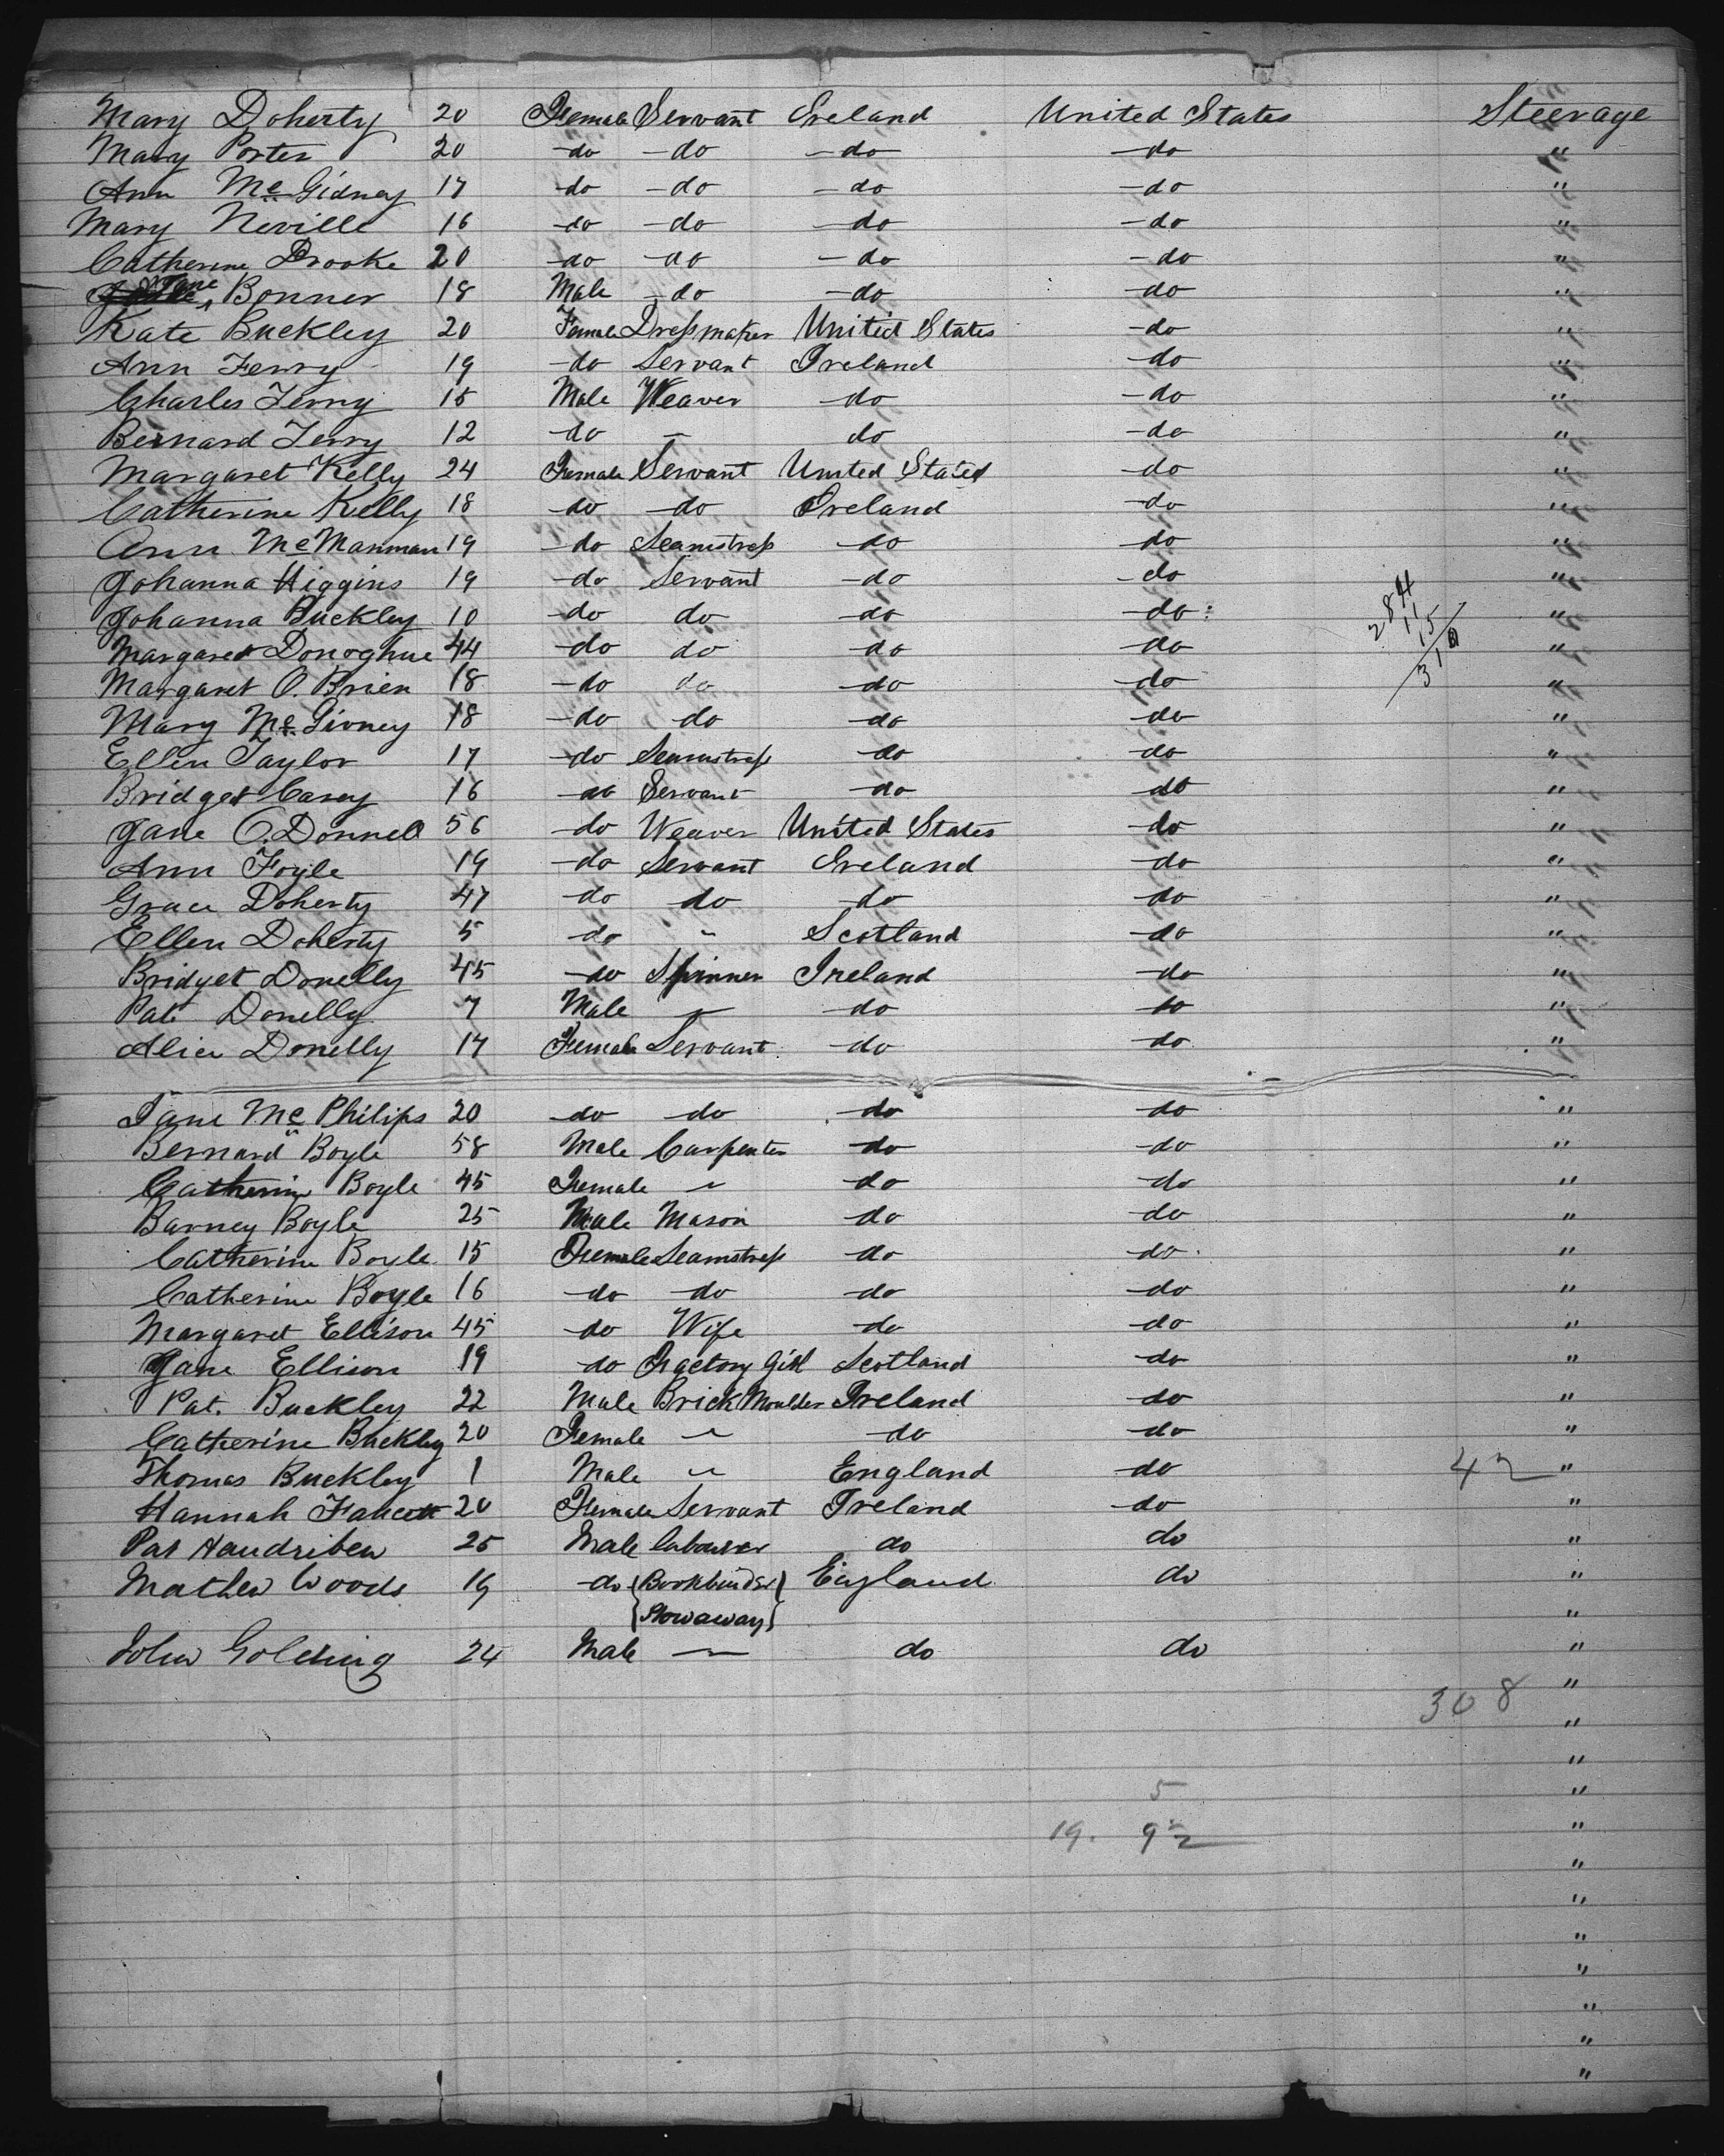 Mary Doherty 20 Female Servant Ireland United States Steerage
Mary Porter 20 do do do do "
Ann Mc Gidney 17 do do do do "
Mary Neville 16 do do do do "
Catherine Brooke 20 do do do do "
Jane Bonner 18 Male do do do "
Kate Buckley 20 Female Dressmaker United States do "
Ann Ferry 19 do Servant Ireland do "
Charles Ferry 15 Male Weaver do do "
Bernard Ferry 12 do - do do "
Margaret Kelly 24 Female Servant United States do "
Catherine Kelly 18 do do Ireland do "
Ann McManman 19 do Seamstress do do "
Johanna Higgins 19 do Servant do do "
Johanna Buckley 10 do do do do "
284
115
15
310
Margaret Donoghue 44 do do do do "
Margaret O. Brien 18 do do do do "
Mary Mc Givney 18 do do do do "
Ellen Taylor 17 do Seamstress do do "
Bridget Casey 16 do Servant do do "
Jane O. Donnell 56 do Weaver United States do "
Ann Foyle 19 do Servant Ireland do "
Grace Doherty 47 do do do do "
Ellen Doherty 5 do " Scotland do "
Bridget Donelly 45 do Spinner Ireland do "
Pat Donelly 7 Male - do do "
Alice Donelly 17 Female Servant do do "
Jane Mc Philips 20 do do do do "
Bernard Boyle 58 Male Carpenter do do "
Catherine Boyle 45 Female " do do "
Barney Boyle 25 Male Mason do do "
Catherine Boyle 15 Female Seamstress do do "
Catherine Boyle 16 do do do do "
Margaret Ellison 45 do Wife do do "
Jane Ellison 19 do Factory Girl Scotland do "
Pat. Buckley 22 Male Brick Moulder Ireland do "
Catherine Buckley 20 Female " do do "
Thomas Buckley 1 Male " England do 42 "
Hannah Faucett 20 Female Servant Ireland do "
Pat 25 Male labourer do do "
Mathew Woods 19 do {Bookbinder} England do "
{Stowaway} "
John Golding 24 Male — do do "
308 "
"
"
5 "
19. 9 2 "
"
"
"
"
"
"
"